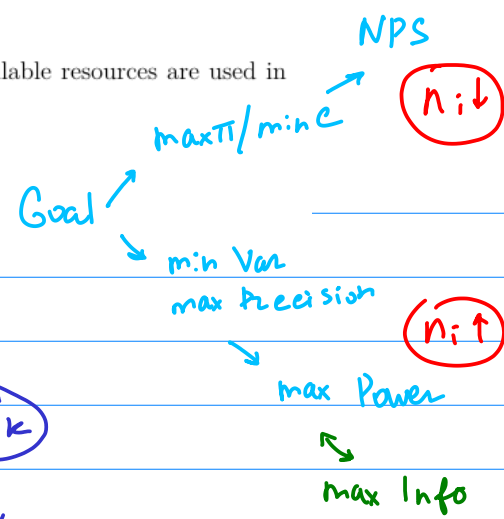 NPS
lable resources are used in
ni↓
maxπ/minC
Goal
min Var
max Precision
ni↑
max Power
k
max Info